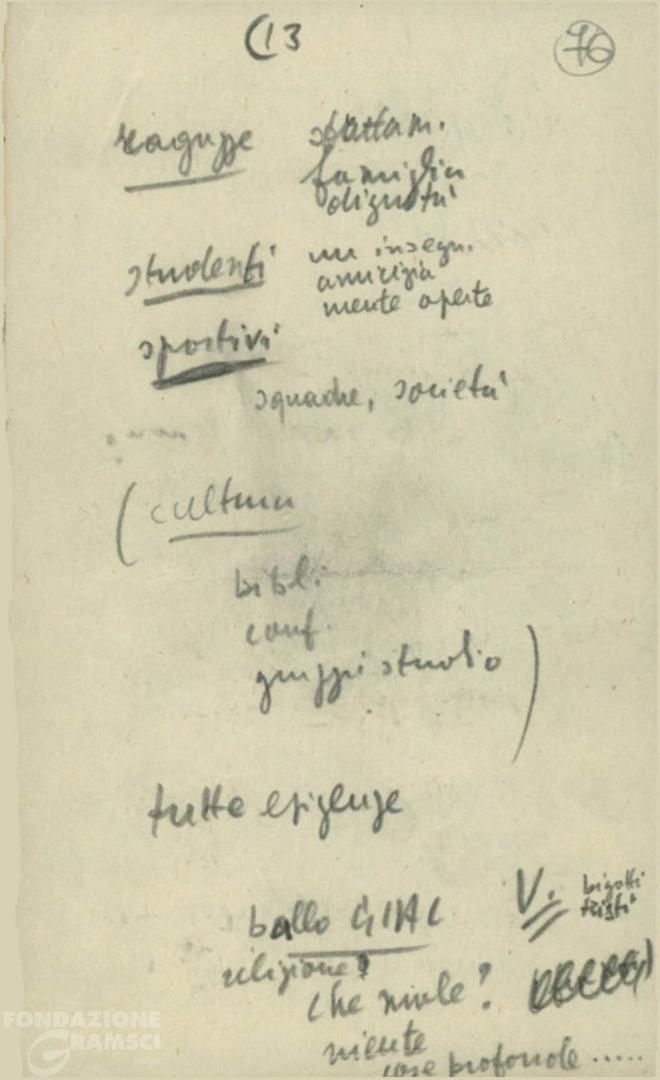 (13
76
ragazze
sfruttam.
famiglia
dignità
studenti
un insegn.
amicizia
mente aperta
sportivi
squadre, società
(cultura
bibl.
conf.
gruppi studio)
tutte esigenze
ballo GIAC
V. bigotti
tristi
religione?
che vuole?
niente
cose profonde .....
FONDAZIONE
GRAMSCI